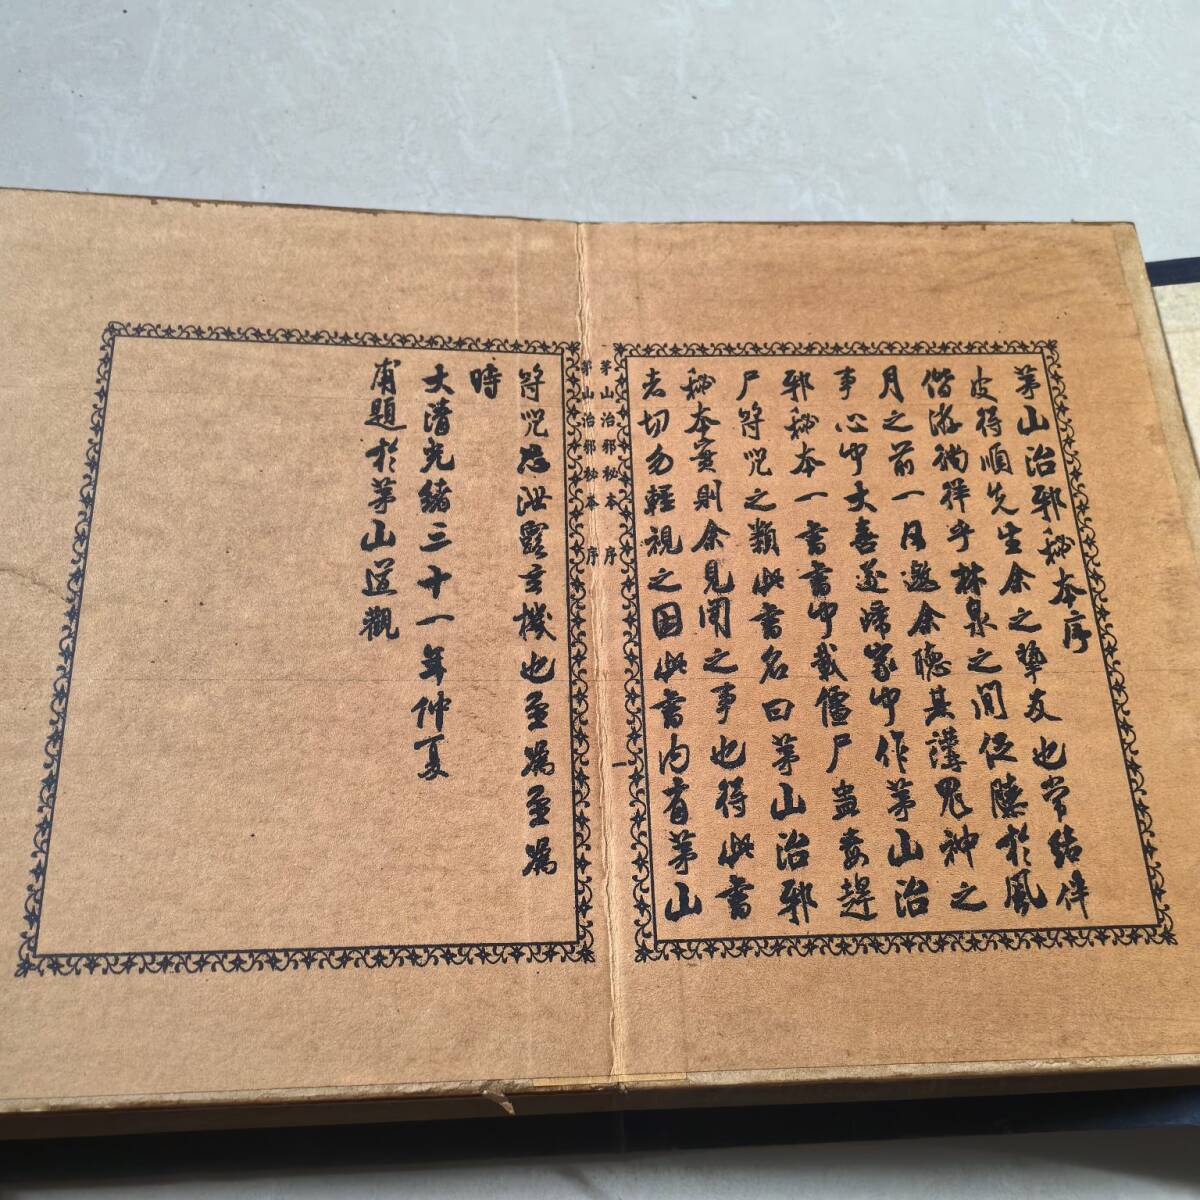 茅山治邪秘本序
皮得順先生余之摯友也常結伴
偕游徜徉乎林泉之間促膝於風
月之前一日邀余聽其講鬼神之
事心中大喜遂歸家中作茅山治
邪秘本一書書中載僵尸蠱毒趕
尸符咒之類此書名曰茅山治邪
秘本實則余見聞之事也得此書
者切勿輕視之因此書内有茅山
茅山治邪秘本 序
一
茅山治邪秘本 序
符咒恐泄露玄機也至爲至爲
時
大清光緒三十一年仲夏
甫題於茅山道觀